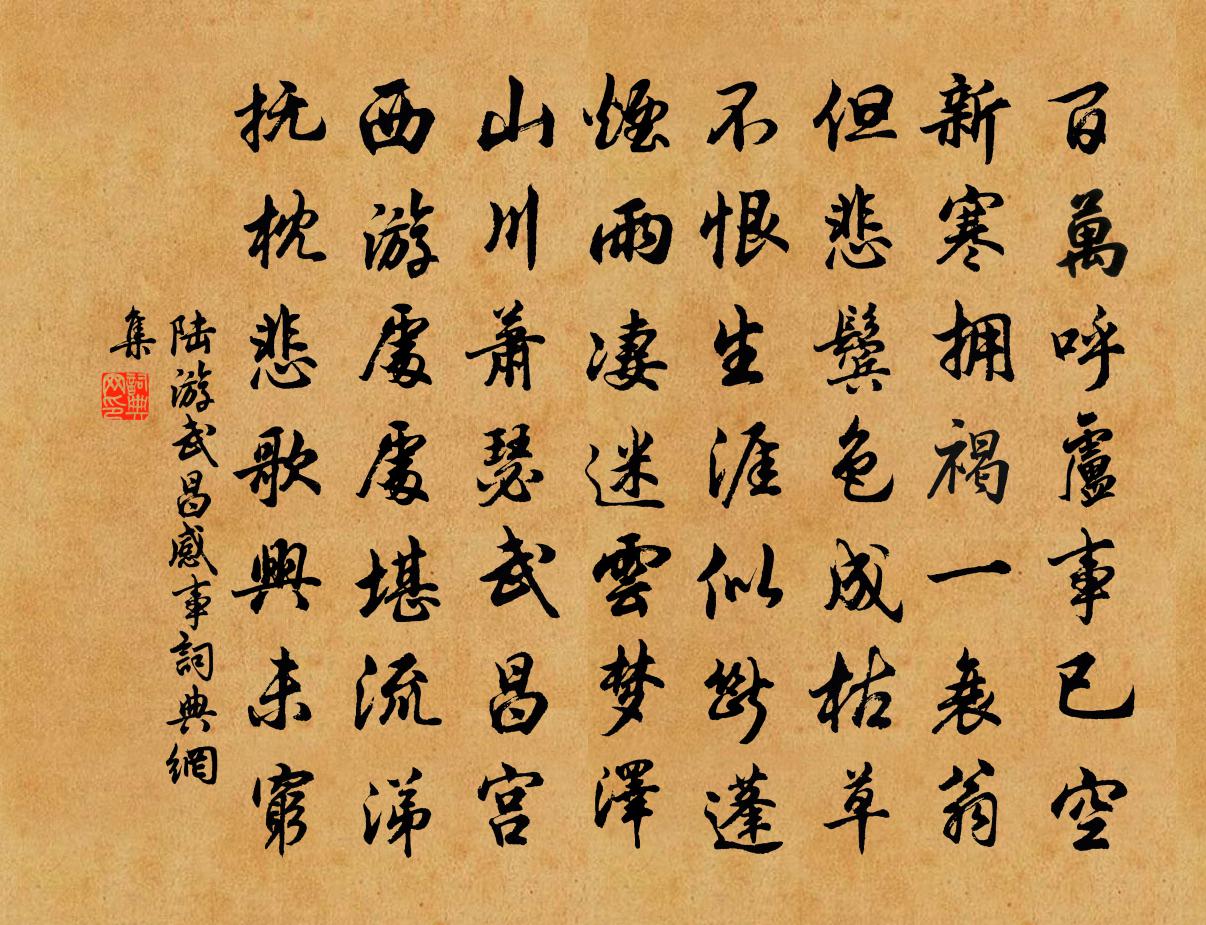 百萬呼盧事已空
新寒拥褐一衰翁
但悲鬓色成枯草
不恨生涯似断蓬
煙雨凄迷雲梦澤
山川萧瑟武昌宫
西游處處堪流涕
抚枕悲歌興未窮
陆游武昌感事詞典網
集
詞典
网印